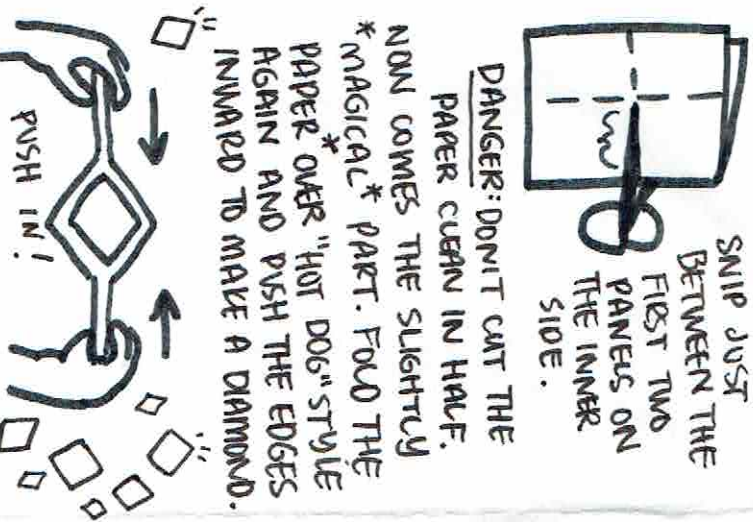 SNIP JUST
BETWEEN THE
FIRST TWO
PANELS ON
THE INNER
SIDE.
DANGER: DON'T CUT THE
PAPER CLEAN IN HALF.
NOW COMES THE SLIGHTLY
*MAGICAL* PART. FOLD THE
PAPER OVER "HOT DOG"* STYLE
AGAIN AND PUSH THE EDGES
INWARD TO MAKE A DIAMOND.
PUSH IN!